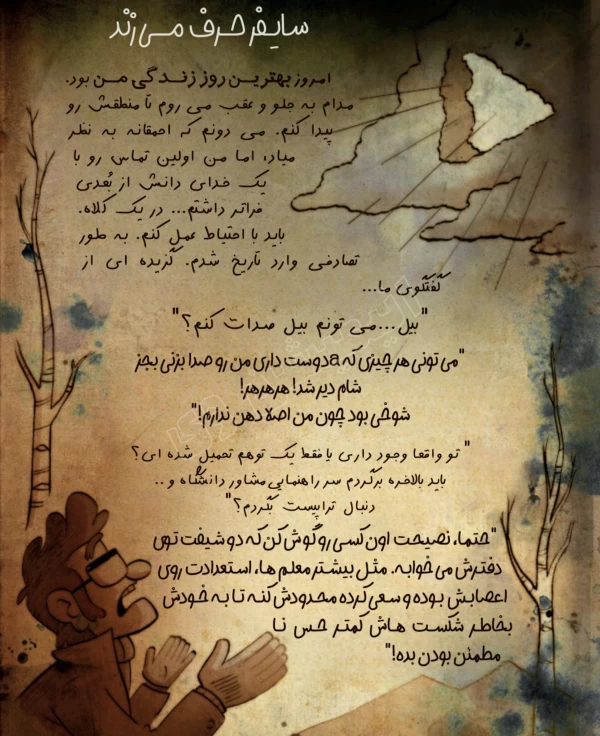 سایفر حرف می زند
امروز بهترین روز زندگی من بود.
مدام به جلو و عقب می روم تا منطقش رو
پیدا کنم. می دونم که احمقانه به نظر
میاد، اما من اولین تماس رو با
یک خدای دانش از بُعدی
فراتر داشتم... در یک کلاه.
باید با احتیاط عمل کنم. به طور
تصادفی وارد تاریخ شدم. گزیده ای از
گفتگوی ما...
"بیل...می تونم بیل صدات کنم؟"
"می تونی هر چیزی که aدوست داری من رو صدا بزنی بجز
شام دیر شد! هرهرهر!
شوخی بود چون من اصلا دهن ندارم!"
"تو واقعا وجود داری یا فقط یک توهم تحمیل شده ای؟
باید بالاخره برگردم سر راهنمایی مشاور دانشگاه و ..
دنبال تراپیست بگردم؟"
"حتما، نصیحت اون کسی رو گوش کن که دو شیفت توی
دفترش می خوابه. مثل بیشتر معلم ها، استعدادت روی
اعصابش بوده و سعی کرده محدودش کنه تا به خودش
بخاطر شکست هاش کمتر حس نا
مطمئن بودن بده!"